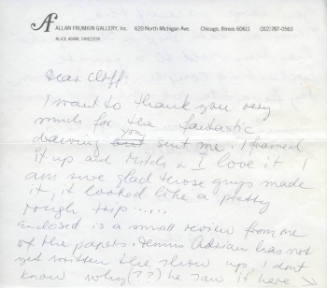 AF ALLAN FRUMKIN GALLERY, Inc. 620 North Michigan Ave. Chicago, Illinois 60611 (312) 787-0563
ALICE ADAM, DIRECTOR
Dear Cliff:
I want to thank you very
much for the fantastic
drawing you sent me. I framed
it up and Mitch & I love it. I
am sure glad those guys made
it, it looked like a pretty
rough trip.....
Enclosed is a small review from one
of the papers. Dennis Adrian has not
yet written the show up, I don't
know why (??) he saw it here